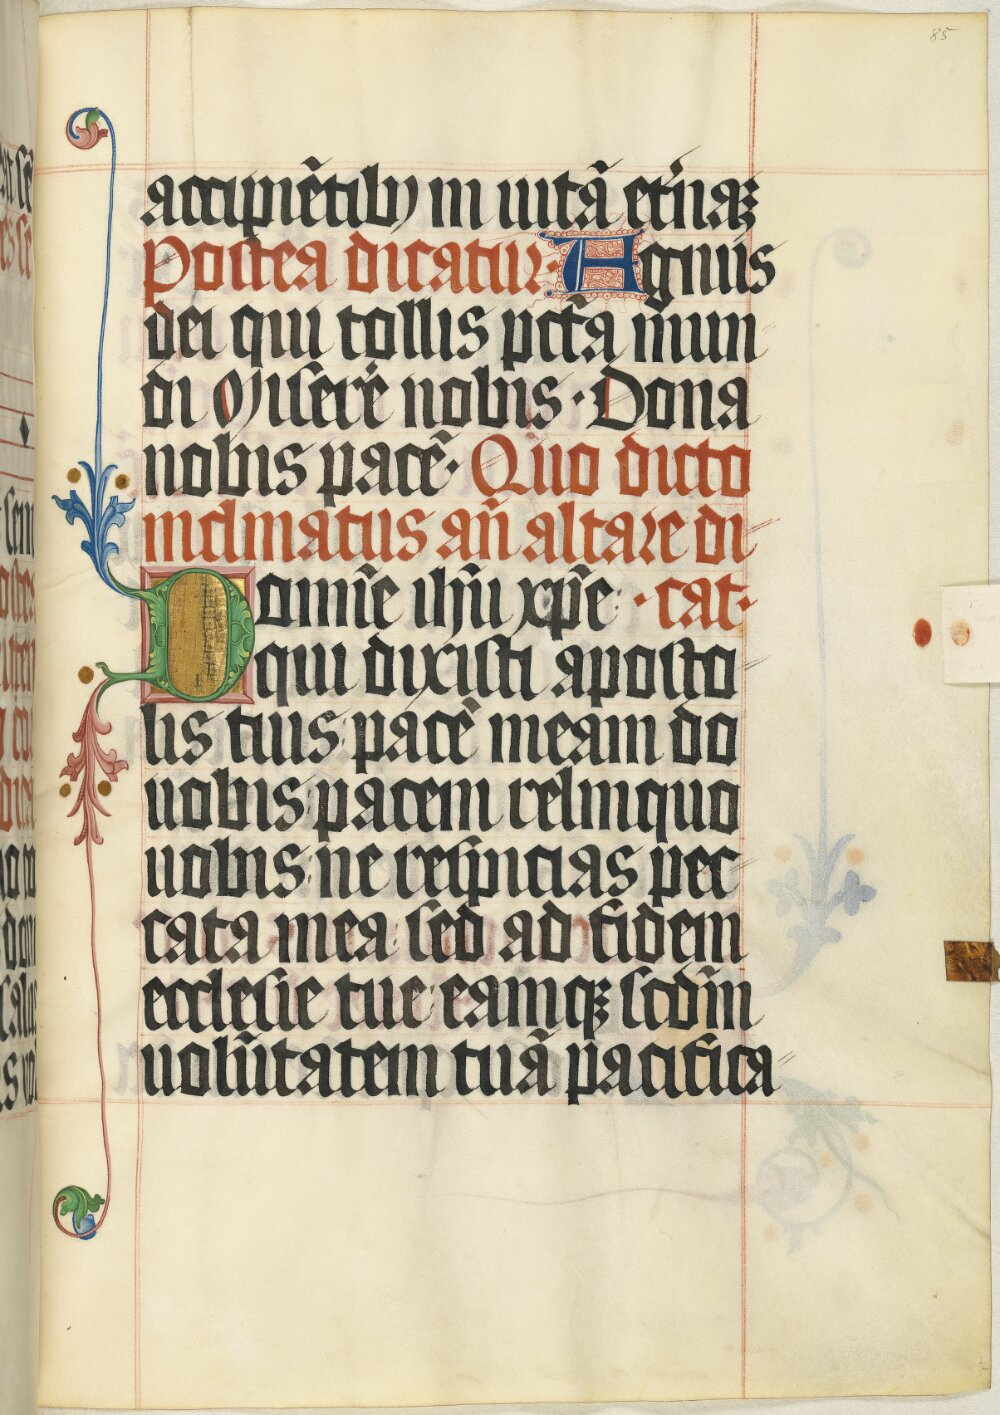 85
accipiẽtibꝰ in uitã et'naꝫ
Postea dicatur· Agnus
dei qui tollis pctã mun
di Miserer̄ nobis · Dona
nobis pacẽ· Quo dicto
inclinatus añ altare di
Domĩe ihũ xp̃e · cat·
qui dixisti aposto
lis tuis pacẽ meam do
uobis pacem relinquo
uobis ne respicias pec
cata mea sed ad fidem
ecclesie tue eamqꝫ scdm̃
uolũtatem tuã pacifica